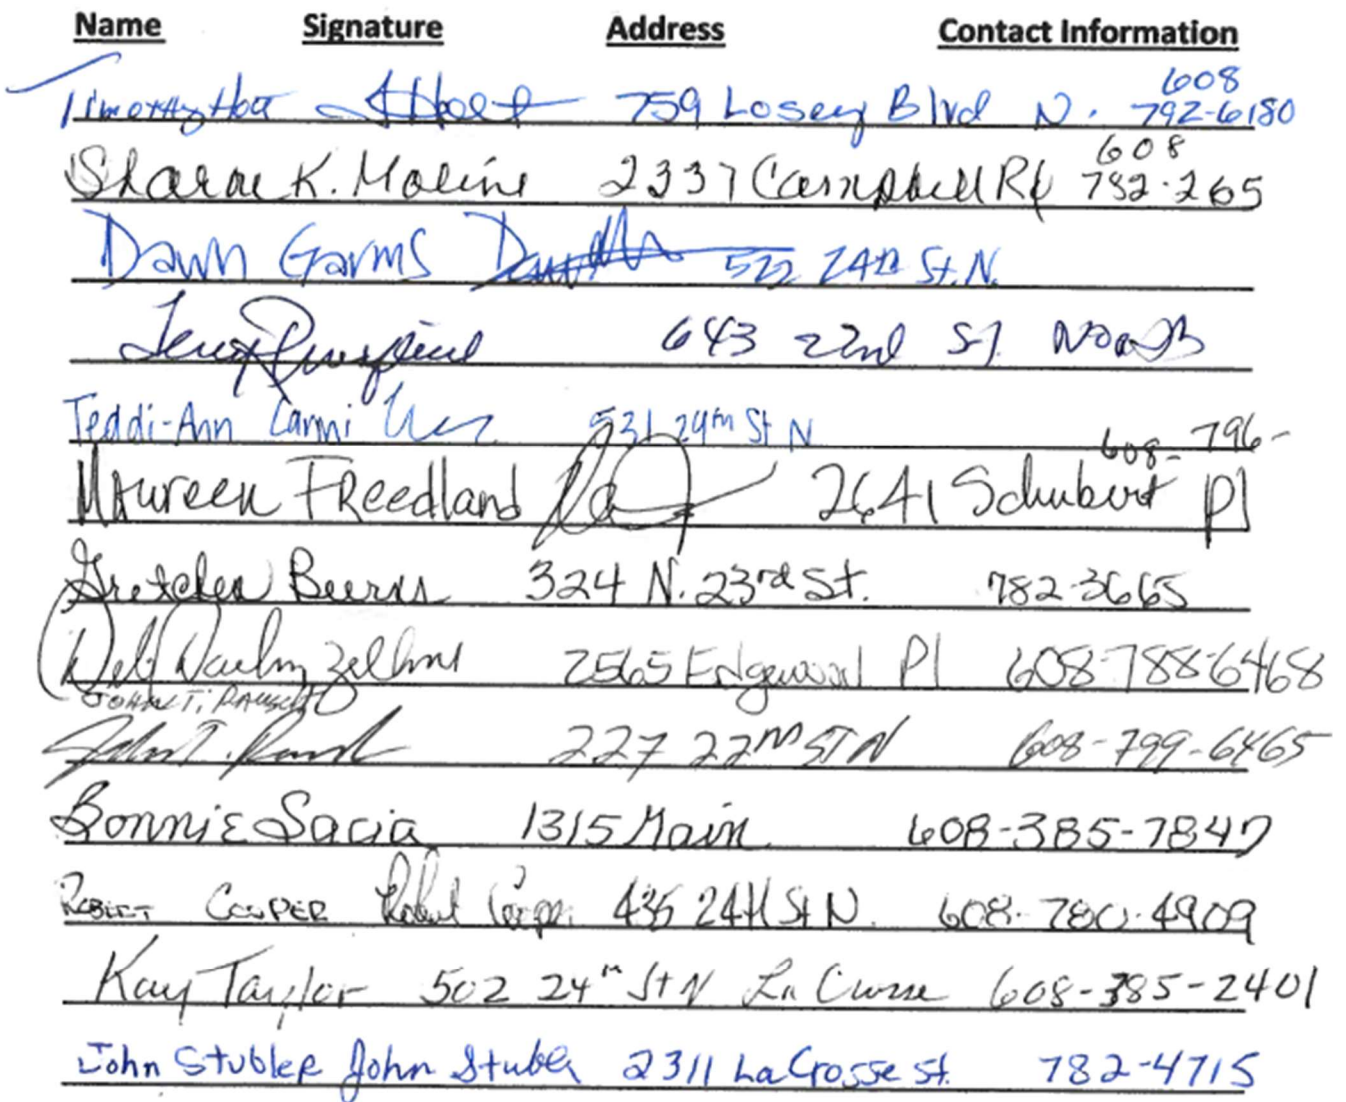 Name Signature Address Contact Information
608
Timothy Holt 759 Losey Blvd N. 792-6180
608
Sharon K. Moline 2337 Campbell Rd 782-265
Dawn Garms 522 24th St. N.
643 22nd St North
Teddi-Ann Carmi 531 24th St N
608- 796-
Maureen Freedland 2641 Schubert Pl
Gretchen Beers 324 N. 23rd St. 782-3665
2565 Edgewood Pl 608-788-6468
John T. Rausch
John T. Rausch 227 22nd ST N 608-799-6465
Bonnie Sacia 1315 Main 608-385-7847
Robert Cooper Robert Cooper 435 24th St N. 608-780-4909
Kay Taylor 502 24th St N La Crosse 608-385-2401
John Stubler John Stubler 2311 La Crosse st. 782-4715